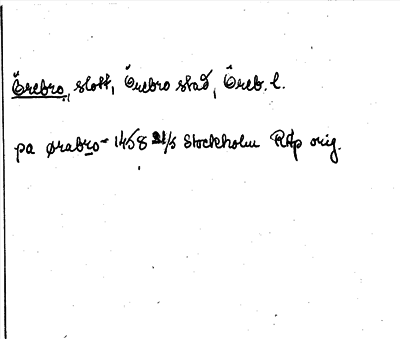 Örebro, slott, Örebro stad, Öreb. l.
pa ørabro 1458 21/5 Stockholm RAp orig.